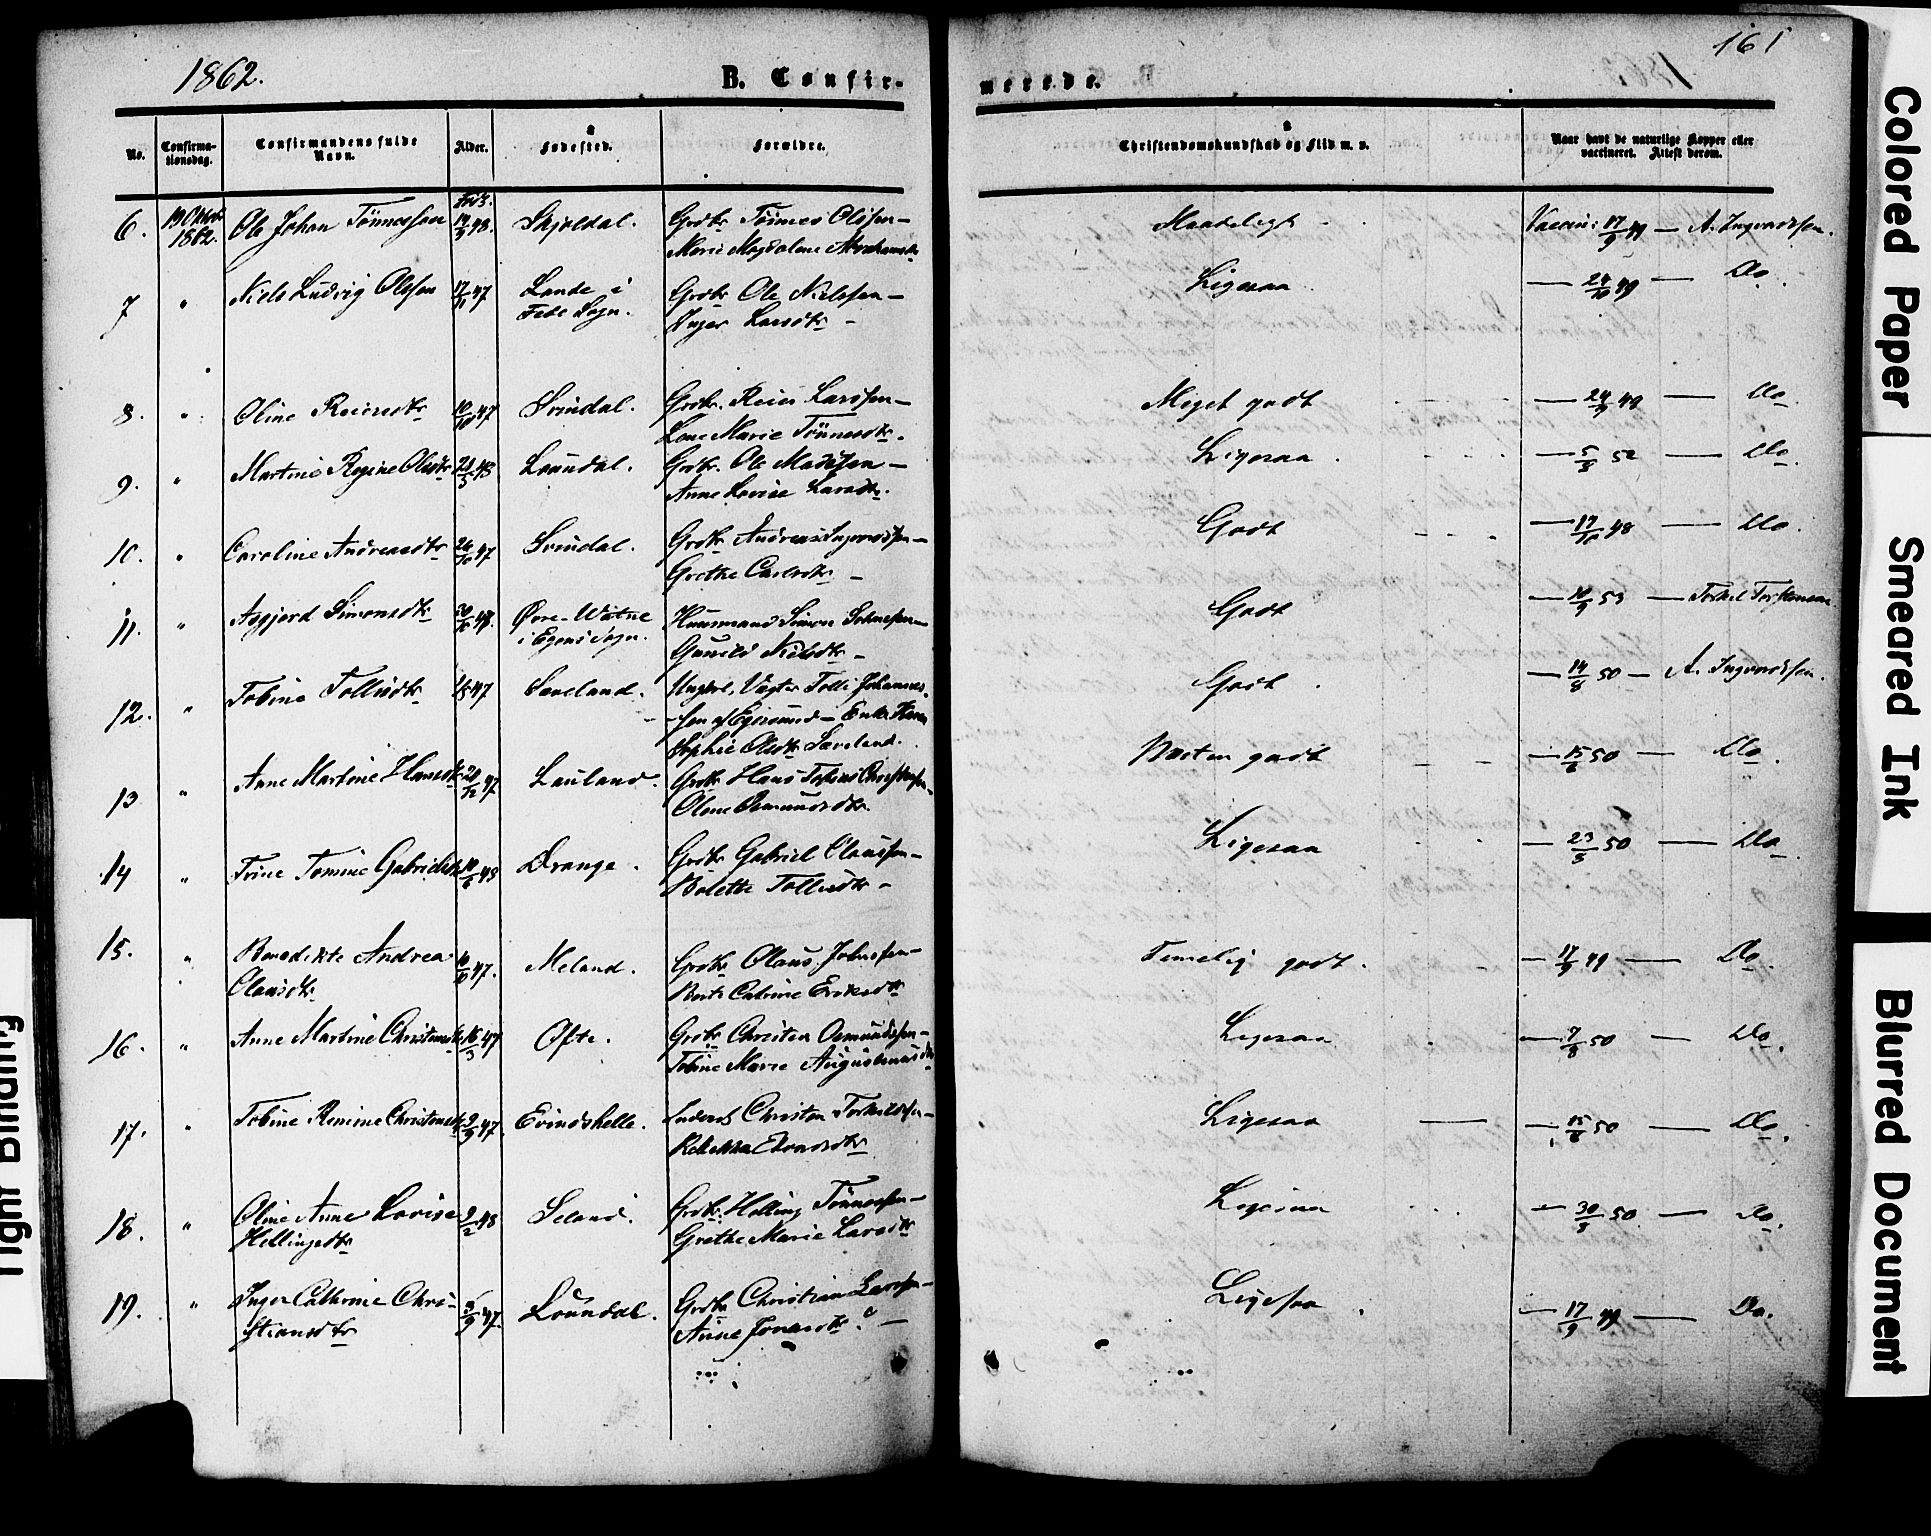 1862.
B. Confir-
merede.
161
No.
Confirma-
tionsdag.
Confirmandens fulde
Navn.
Alder.
Fødested.
Forældre.
Christendomskundskab og Flid m. v.
Naar havt de naturlige Kopper eller
vaccineret. Attest derom.
6. 19 Oktbr 1862. Ole Johan Tönnessen 48. Skjoldal. Grdbr Tönnes Olsen –
Marie Magdalene
Maadeligt
Vaccin: 17/9 49 — A. Ingvaldsen.
7 " Niels Ludvig Olsen 17/11 47 Lande i Grdbr Ole Nielsen –
Fede Sogn. Inger Larsdtr –
Ligesaa — 24/10 49 — Do.
8. " Oline Reiersdtr 10/10 47 Svindal. Grdbr. Reier Larsen –
Lene Marie Tönnesdtr.
Meget godt — 24/9 49 — Do.
9. " Martine Regine Olsdtr 48 Loundal. Grdbr. Ole Madsen –
Anne Lovise Larsdtr.
Ligesaa — 5/8 52 — Do.
10. " Caroline Andreasdtr 26/10 47 Svindal. Grdbr Andreas Ingvaldsen –
Grethe Carlsdtr –
Godt — 17/10 48 — Do.
11. " Asgjerd Simonsdtr Øvre-
i Egens Sogn. Huusmand Simon
Gunild Nielsdtr –
Godt — 53 — Torkel
12. " Tobine Tollisdtr 47 Sæveland. Ungkrl. Vægter Tolli Johannes-
sen af Egersund – Enke
Sophie Olsdtr Sæveland.
Godt — 14/8 50 — A. Ingvaldsen.
13 " Anne Martine Hansdtr 47 Lauland. Grdbr Hans
Olene Osmundsdtr
Næsten godt — 15/6 50 — Do.
14 " Trine Tomine Gabrielsdtr 48 Drange. Grdbr Gabriel Olaussen –
Bolette Tollisdtr –
Ligesaa — 23/5 50 — Do.
15. " Benedikte Andrea
Olausdtr 47. Meland. Grdbr Olaus Johnsen –
Berte Catrine Eriksdtr
Temelig godt. — 17/9 49 — Do.
16. " Anne Martine Christensdtr 16/3 47 Ofte. Grdbr Christen Osmundsen –
Tobine Marie Augustinusdtr
Ligesaa — 7/8 50 — Do.
17. " Tobine Christensdtr 9/9 47 Evindshelle. Christen Torkildsen –
Rebekka
Ligesaa — 15/6 50 — Do.
18. " Oline Anne Lovise
Hellingsdtr 9/2 48 Seland. Grdbr. Helling Tönnessen –
Grethe Marie Larsdtr
Ligesaa — 30/5 50 — Do.
19. " Inger Cathrine Chri-
stiansdtr 47. Loundal. Grdbr Christian Larsen –
Anne Jonasdtr. –
Ligesaa. — 17/9 49 — Do.
Colored Paper
Smeared Ink
Blurred Document
Tight Binding